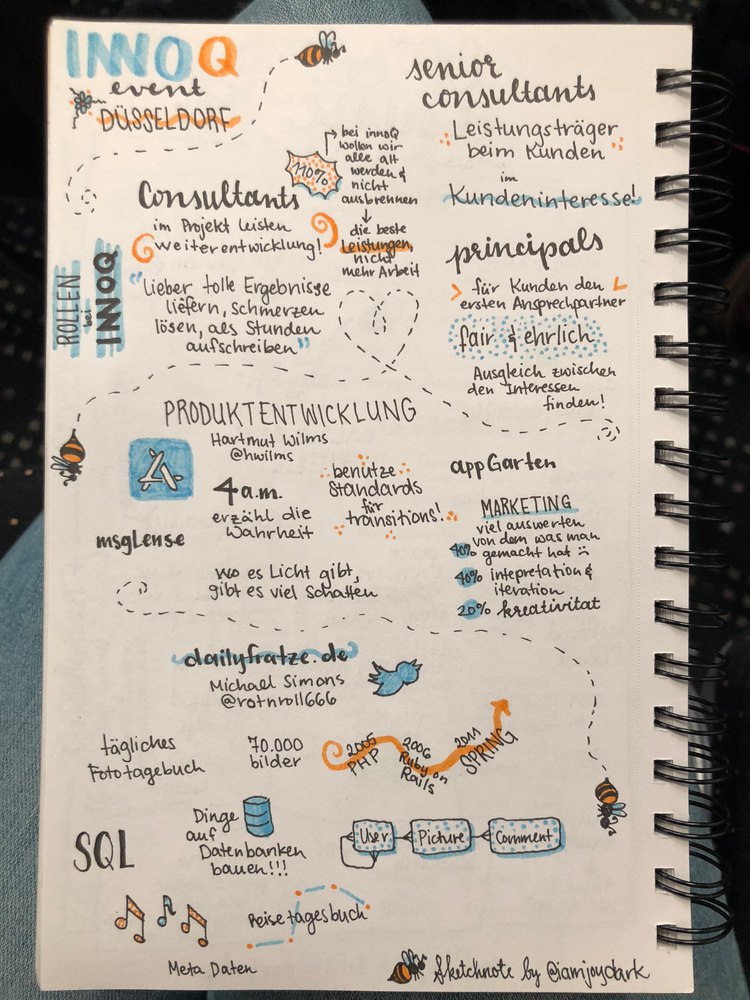 INNOQ
event
DÜSSELDORF
senior
consultants
Leistungsträger
beim Kunden
im
Kundeninteresse!
110%
bei innoQ
wollen wir
alle alt
werden &
nicht
ausbrennen
die beste
Leistungen,
nicht
mehr Arbeit
Consultants
im Projekt leisten
weiterentwicklung!
"Lieber tolle Ergebnisse
liefern, schmerzen
lösen, als Stunden
aufschreiben"
ROLLEN
bei
INNOQ
principals
für Kunden den
ersten Ansprechpartner
fair & ehrlich
Ausgleich zwischen
den Interessen
finden!
PRODUKTENTWICKLUNG
Hartmut Wilms
@hwilms
4 a.m.
erzähl die
Wahrheit
benütze
standards
für
transitions!
appGarten
MARKETING
viel auswerten
von dem was man
40% gemacht hat :(
40% intepretation &
iteration
20% kreativitat
msgLense
wo es Licht gibt,
gibt es viel Schatten
dailyfratze.de
Michael Simons
@rotnroll666
tägliches
Fototagebuch
70.000
bilder
2005
PHP
2006
Ruby on
Rails
2011
SPRING
SQL
Dinge
auf
Datenbanken
bauen!!!
User
Picture
Comment
Reisetagesbuch
Meta Daten
Sketchnote by @iamjoyclark